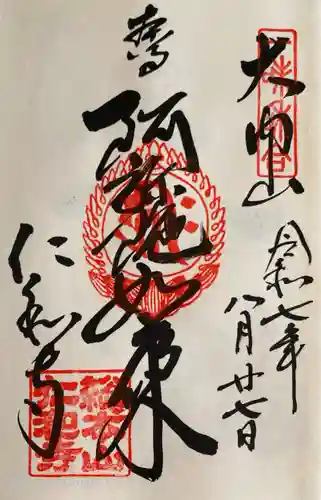 大内山
令和七年
八月廿七日
奉拝
阿弥陀如来
仁和寺
総本山
仁和寺